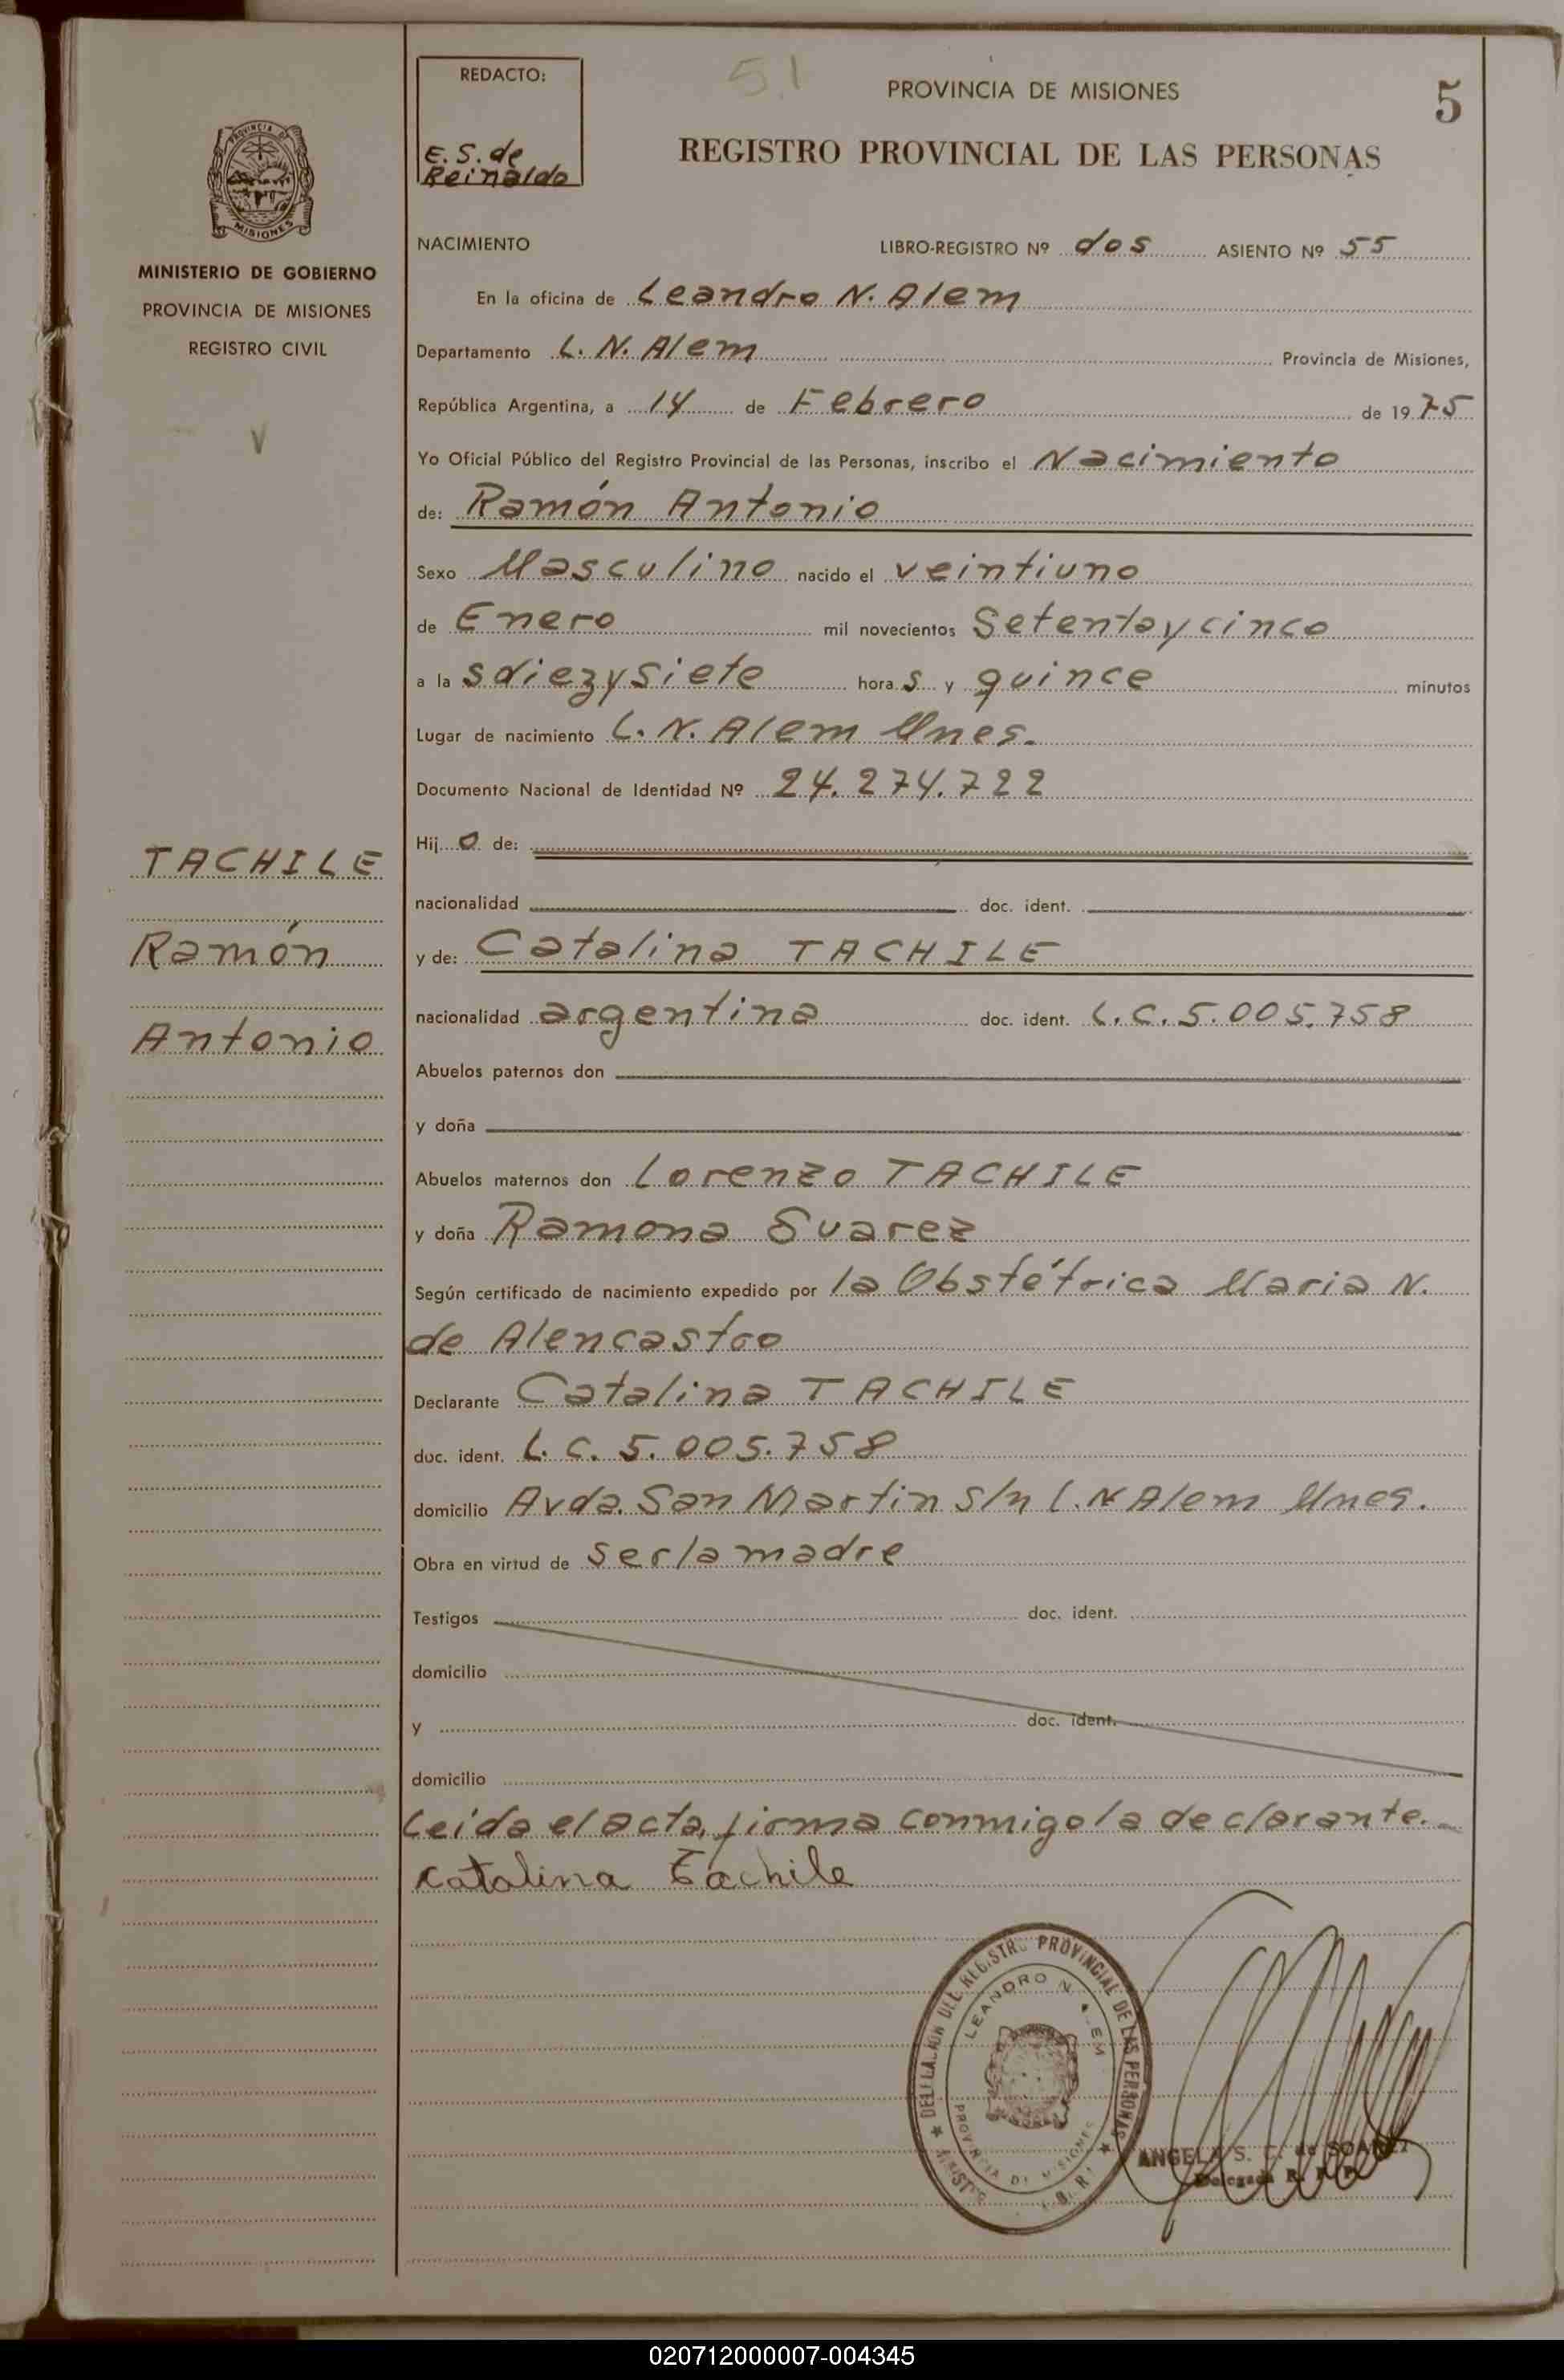 REDACTO:
E. S. de
Reinaldo
51
PROVINCIA DE MISIONES
5
REGISTRO PROVINCIAL DE LAS PERSONAS
PROVINCIA DE
MISIONES
MINISTERIO DE GOBIERNO
PROVINCIA DE MISIONES
REGISTRO CIVIL
V
TACHILE
Ramón
Antonio
NACIMIENTO LIBRO-REGISTRO Nº dos ASIENTO Nº 55
En la oficina de Leandro N. Alem
Departamento L. N. Alem Provincia de Misiones,
República Argentina, a 14 de Febrero de 1975
Yo Oficial Público del Registro Provincial de las Personas, inscribo el Nacimiento
de: Ramón Antonio
Sexo Masculino nacido el veintiuno
de Enero mil novecientos Setentaycinco
a la s diezysiete hora s y quince minutos
Lugar de nacimiento L. N. Alem Mnes.
Documento Nacional de Identidad Nº 24.274.722
Hij o de:
nacionalidad doc. ident.
y de: Catalina TACHILE
nacionalidad argentina doc. ident. L.C. 5.005.758
Abuelos paternos don
y doña
Abuelos maternos don Lorenzo TACHILE
y doña Ramona Suarez
Según certificado de nacimiento expedido por la Obstétrica Maria N.
de Alencastro
Declarante Catalina TACHILE
doc. ident. L. C. 5.005.758
domicilio Avda. San Martin s/n L. N Alem Mnes.
Obra en virtud de ser la madre
Testigos doc. ident.
domicilio
y doc. ident.
domicilio
Leída el acta, firma conmigo la declarante.
Catalina Tachile
DELEGACION DEL REGISTRO PROVINCIAL DE LAS PERSONAS
LEANDRO N. ALEM
PROVINCIA DE MISIONES
ANGELA S. C. de SOAREZ
Delegada R. P. P.
020712000007-004345